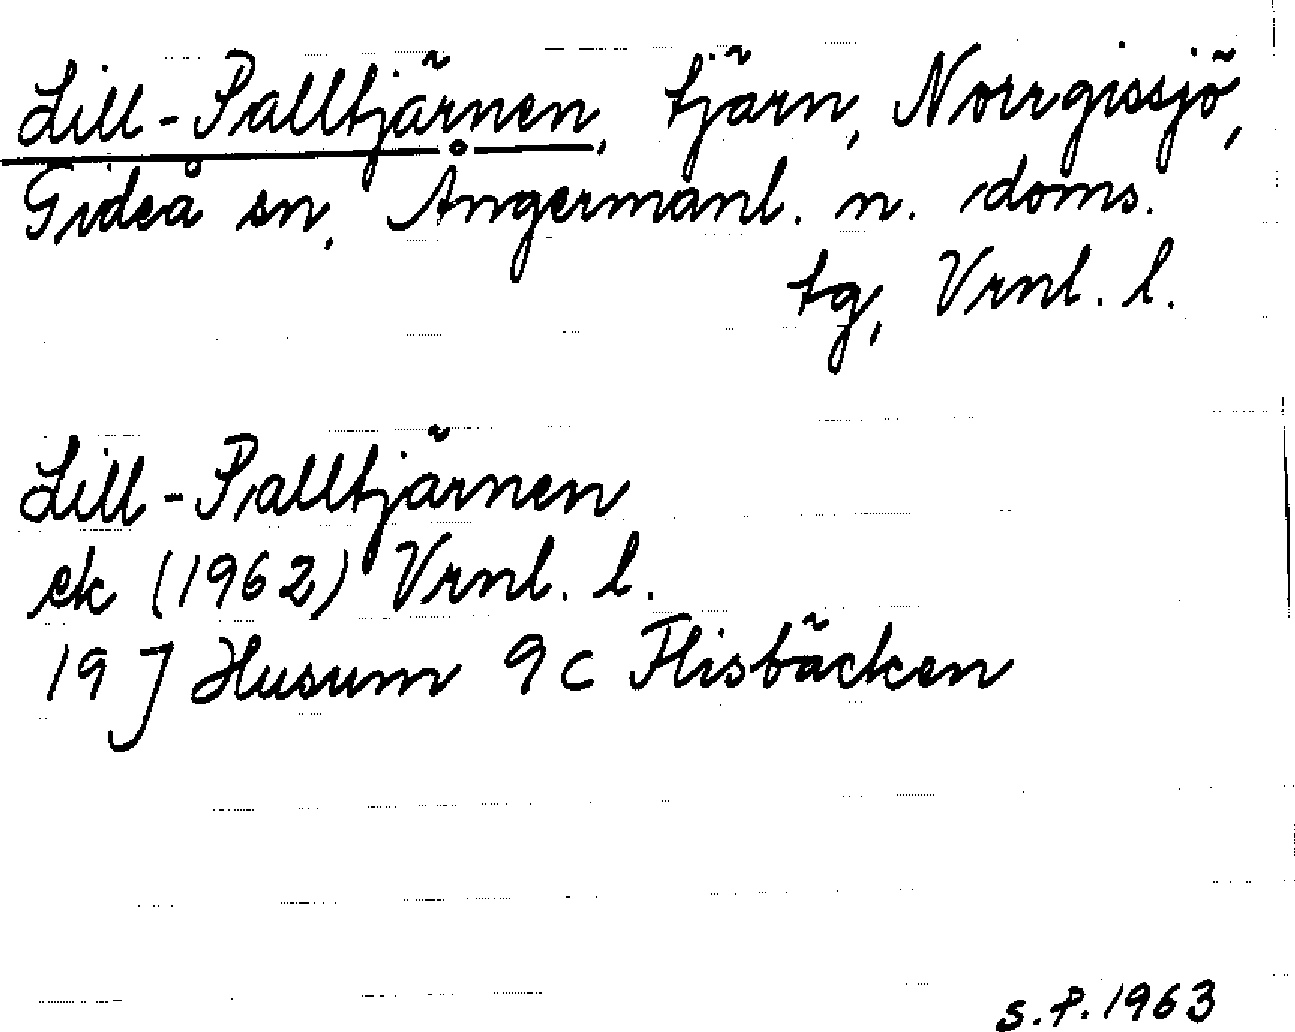 Lill-Palltjärnen, tjärn, Norrgissjö,
Gideå sn, Ångermanl. n. doms.
tg, Vrnl. l.
Lill-Palltjärnen
ek (1962) Vrnl. l.
19 J Husum 9c Flisbäcken
S.P. 1963